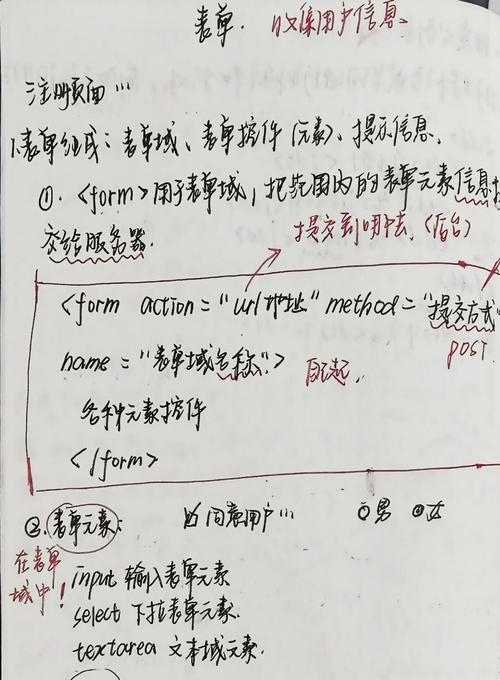 表单. 收集用户信息.
注册页面...
1.表单组成:表单域、表单控件(元素)、提示信息.
①.<form>用于表单域,把范围内的表单元素信息提
交给服务器.
提交到哪去.(后台)
<form action="url地址" method="提交方式"
POST.
name="表单域名称"> 自己起.
各种元素控件
</form>
②.表单元素: 同意用户... 男 女
在表单
域中!
input 输入表单元素
select 下拉表单元素.
textarea 文本域元素.